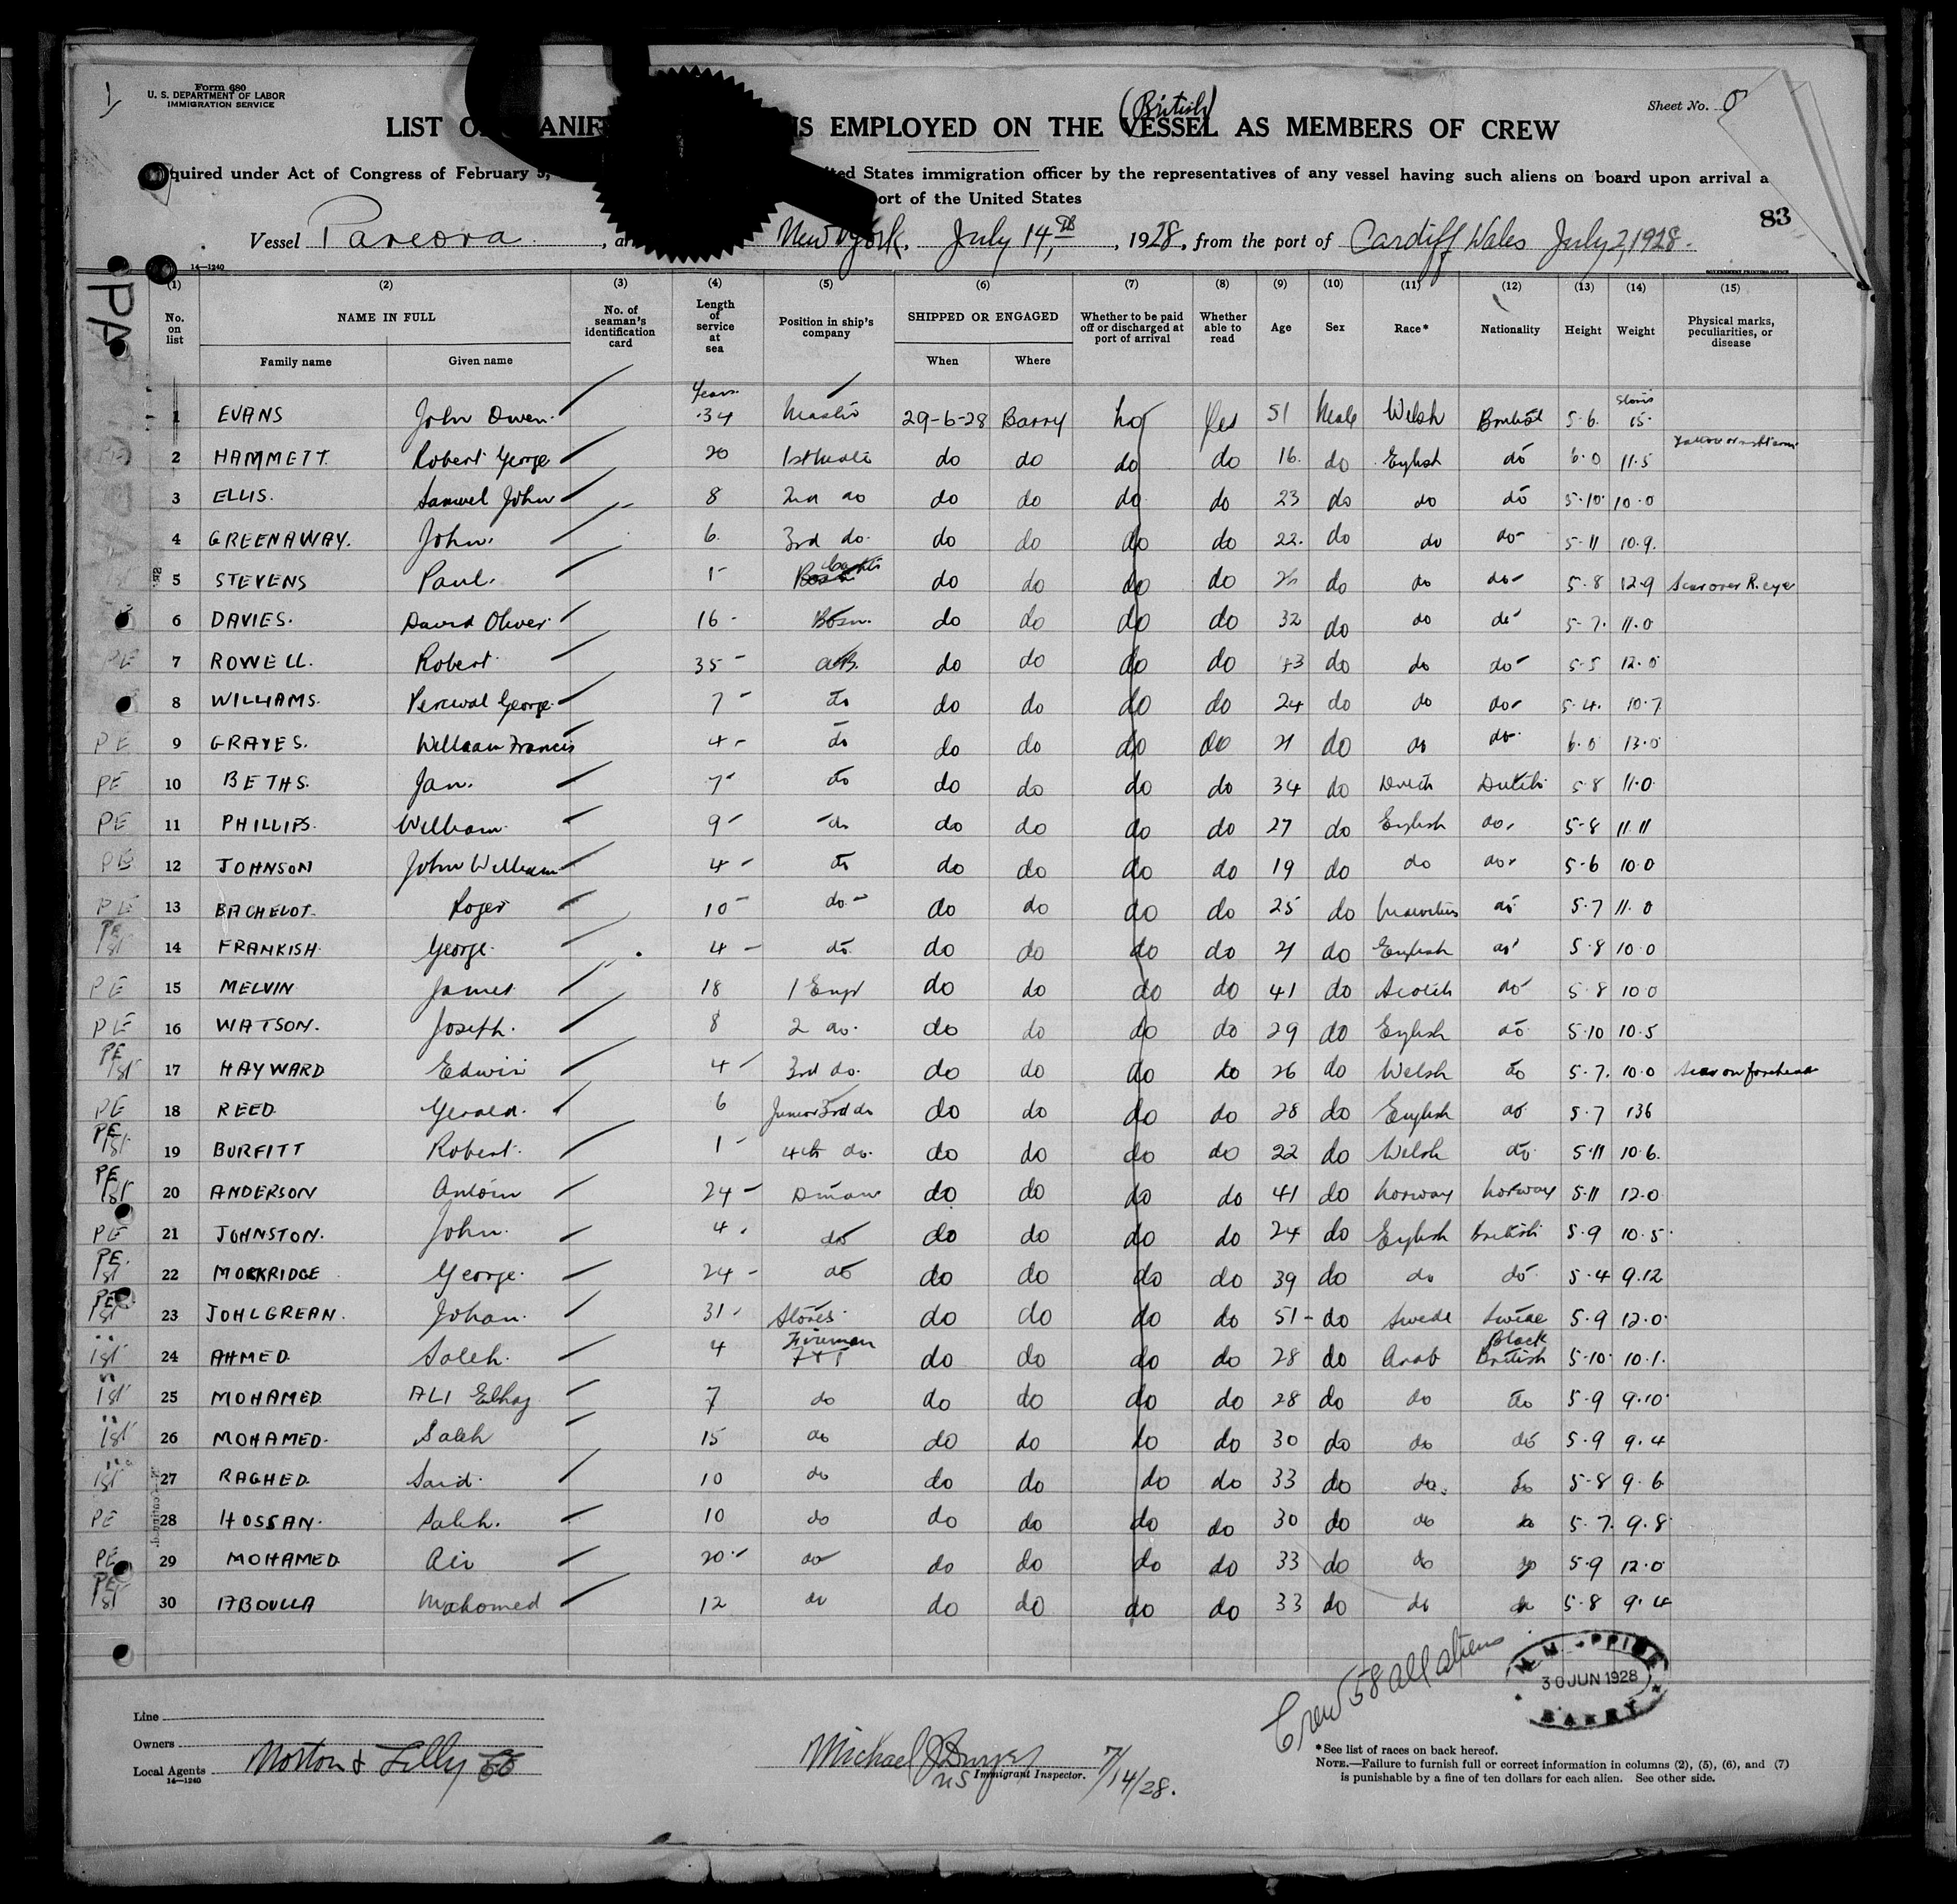 1
Form 680
U. S. DEPARTMENT OF LABOR
IMMIGRATION SERVICE
Sheet No.
(British)
LIST O ANIF S EMPLOYED ON THE VESSEL AS MEMBERS OF CREW
quired under Act of Congress of February 5, ited States immigration officer by the representatives of any vessel having such aliens on board upon arrival a
ort of the United States
83
Vessel Pareora, ar New York, July 14th, 1928, from the port of Cardiff Wales July 2, 1928.
14—1240
GOVERNMENT PRINTING OFFICE
(1) (2) (3) (4) (5) (6) (7) (8) (9) (10) (11) (12) (13) (14) (15)
No. on list NAME IN FULL No. of seaman's identification card Length of service at sea Position in ship's company SHIPPED OR ENGAGED Whether to be paid off or discharged at port of arrival Whether able to read Age Sex Race* Nationality Height Weight Physical marks, peculiarities, or disease
Family name Given name When Where
Years Stones
1 EVANS John Owen 34 Master 29-6-28 Barry No Yes 51 Male Welsh British 5-6 15
2 HAMMETT Robert George 20 1st Mate do do do do 16 do English do 6-0 11.5
3 ELLIS. Samuel John 8 2nd do do do do do 23 do do do 5-10 10-0
4 GREENAWAY. John 6 3rd do do do do do 22 do do do 5-11 10.9
5 STEVENS Paul 1 do do do do do do do 5-8 12-9 Scar over R. eye
6 DAVIES. David Oliver 16 Bosn. do do do do 32 do do do 5-7 11.0
7 ROWELL. Robert 35 AB. do do do do 43 do do do 5-5 12.0
8 WILLIAMS. Percival George 7 do do do do do 24 do do do 5-4 10-7
9 GRAVES. William Francis 4 do do do do do 21 do do do 6-0 13-0
PE 10 BETHS. Jan. 7 do do do do do 34 do Dutch Dutch 5-8 11-0
PE 11 PHILLIPS. William 9 do do do do do 27 do English do 5-8 11.11
PE 12 JOHNSON John William 4 do do do do do 19 do do do 5-6 10-0
PE 13 BACHELOT. Roger 10 do do do do do 25 do Mauritius do 5-7 11.0
PE 1st 14 FRANKISH George 4 do do do do do 21 do English do 5-8 10-0
PE 15 MELVIN James 18 1 Engr do do do do 41 do Scotch do 5-8 10-0
PE 16 WATSON. Joseph. 8 2 do do do do do 29 do English do 5-10 10.5
PE 1st 17 HAYWARD Edwin 4 3rd do. do do do do 26 do Welsh do 5-7 10-0 Scar on forehead
PE 18 REED Gerald. 6 Junior 3rd do do do do do 28 do English do 5-7 136
PE 1st 19 BURFITT Robert 1 4th do. do do do do 22 do Welsh do 5-11 10-6
PE 1st 20 ANDERSON Anton 24 Dman do do do do 41 do Norway Norway 5-11 12.0
PE 21 JOHNSTON. John 4 do do do do do 24 do English British 5-9 10.5
PE 1st 22 MOCKRIDGE George 24 do do do do do 39 do do do 5-4 9.12
PE 1st 23 JOHLGREAN. Johan. 31 Stores do do do do 51 do Swede Swede 5-9 12.0
1st 24 AHMED Saleh. 4 Fireman do do do do 28 do Arab Black British 5-10 10.1
1st 25 MOHAMED ALI Elhag 7 do do do do do 28 do do do 5-9 9.10
1st 26 MOHAMED. Saleh 15 do do do do do 30 do do do 5-9 9.4
1st 27 RAGHED Said. 10 do do do do do 33 do do do 5-8 9.6
PE 28 HOSSAN. Saleh. 10 do do do do do 30 do do do 5-7 9.8
PE 29 MOHAMED Air 20 do do do do do 33 do do do 5-9 12.0
PE 1st 30 ABDULLA Mahomed 12 do do do do do 33 do do do 5-8 9.4
Crew 58 all aliens
30 JUN 1928
BARRY
Line
Owners
Local Agents Norton & Lilly Co
14—1240
Michael J Dwyer 7/14/28.
US Immigrant Inspector.
*See list of races on back hereof.
NOTE.—Failure to furnish full or correct information in columns (2), (5), (6), and (7)
is punishable by a fine of ten dollars for each alien. See other side.